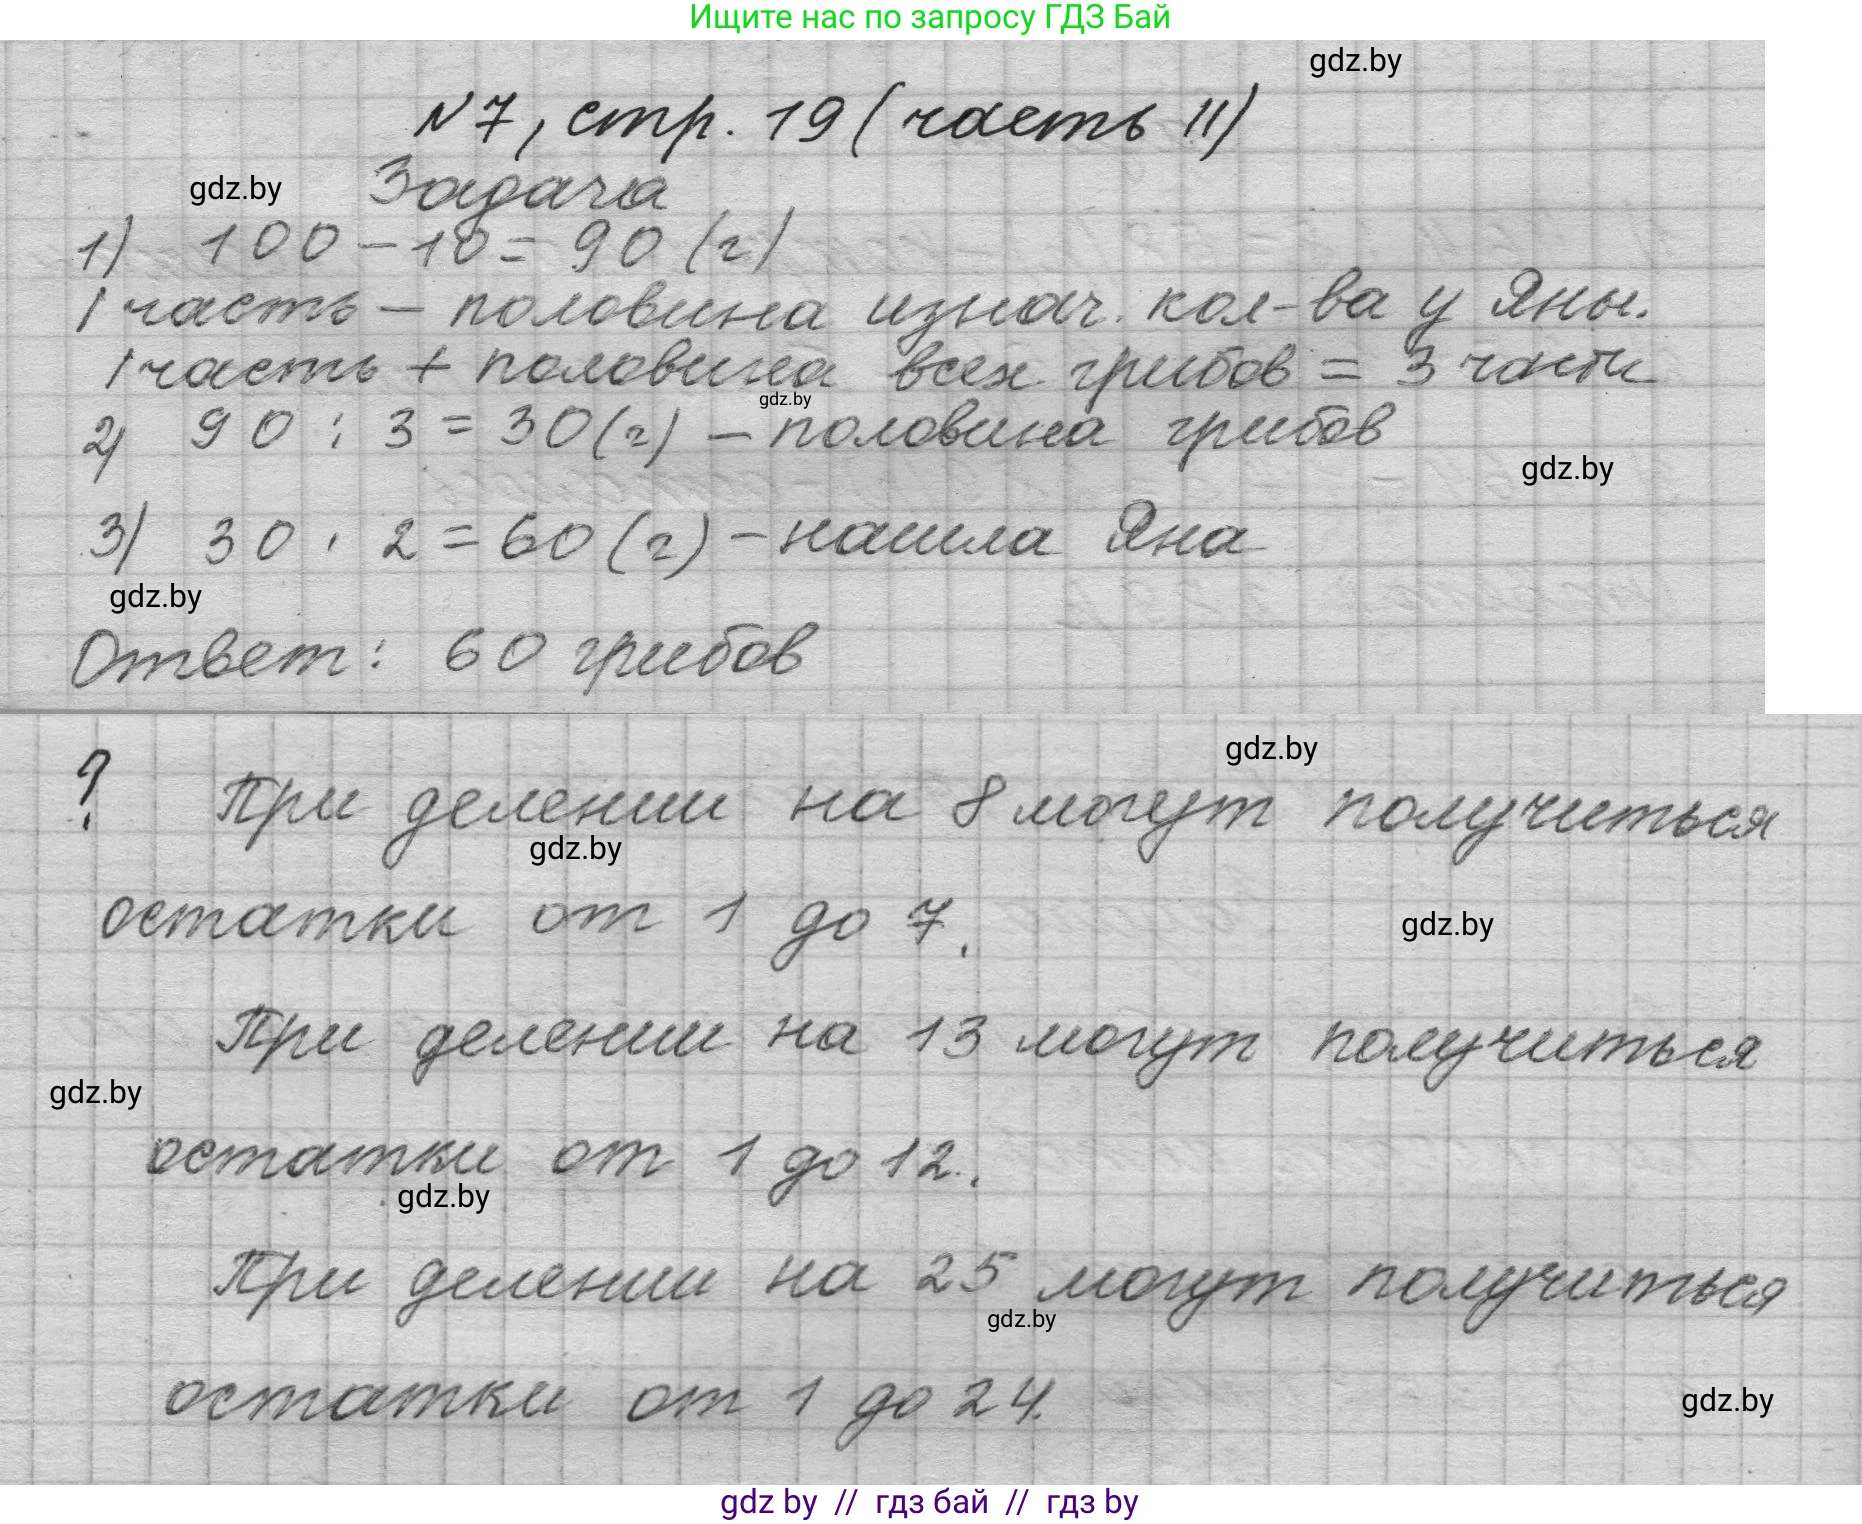 Ищите нас по запросу ГДЗ Бай
gdz.by
№7, стр. 19 (часть II)
gdz.by
Задача
1) 100 - 10 = 90 (г)
1 часть - половина изнач. кол-ва у Яны.
1 часть + половина всех грибов = 3 части
gdz.by
2) 90 : 3 = 30 (г) - половина грибов
gdz.by
3) 30 · 2 = 60 (г) - нашла Яна
gdz.by
Ответ: 60 грибов
gdz.by
? При делении на 8 могут получиться
gdz.by
остатки от 1 до 7.
gdz.by
При делении на 13 могут получиться
gdz.by
остатки от 1 до 12.
gdz.by
При делении на 25 могут получиться
gdz.by
остатки от 1 до 24.
gdz.by
gdz by // гдз бай // гдз by